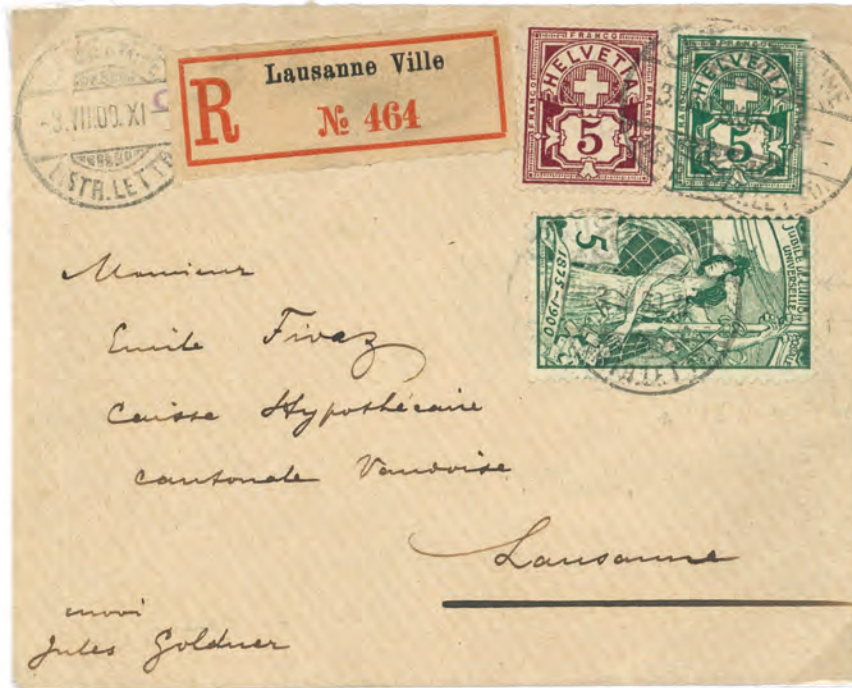 -3.VII.00.XI
DISTR.LETTR
R
Lausanne Ville
№ 464
FRANCO
HELVETIA
FRANCO
5
FRANCO
HELVETIA
5
5
1875-1900
JUBILÉ DE L'UNION
UNIVERSELLE
Monsieur
Emile Fivaz
Caisse Hypothécaire
cantonale Vaudoise
Lausanne
envoi
Jules Goldner